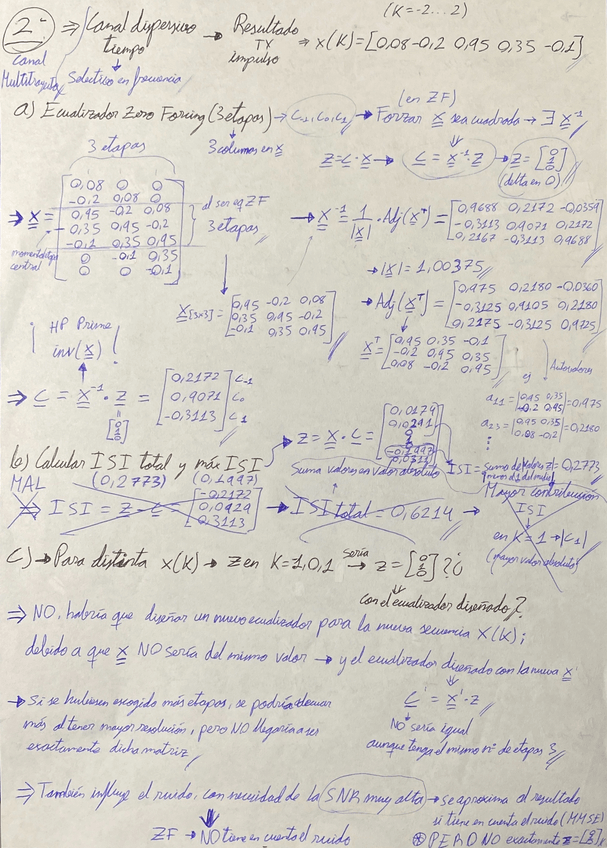 (K=-2...2)
2. ⇒ Canal dispersivo tiempo → Resultado TX impulso ⇒ x(K)=[0,08 -0,2 0,95 0,35 -0,1]
Canal Multitrayecto Selectivo en frecuencia
a) Ecualizador Zero Forcing (3 etapas) → C-1, C0, C1 → Forzar X sea cuadrado → ∃ X⁻¹
(en ZF)
3 etapas
3 columnas en X
Z=C·X → C=X⁻¹·Z → Z=[0 1 0]
(delta en 0)
⇒ X =
0,08 0 0
-0,2 0,08 0
0,95 -0,2 0,08
0,35 0,95 -0,2
-0,1 0,35 0,95
0 -0,1 0,35
0 0 -0,1
al ser eq ZF
3 etapas
central
→ X⁻¹ = 1/|X| · Adj(Xᵀ) =
0,9688 0,2172 -0,0359
-0,3113 0,9071 0,2172
0,2167 -0,3113 0,9688
→ |X| = 1,00375
→ Adj(Xᵀ) =
0,975 0,2180 -0,0360
-0,3125 0,9105 0,2180
0,2175 -0,3125 0,9725
X[3x3] =
0,95 -0,2 0,08
0,35 0,95 -0,2
-0,1 0,35 0,95
Xᵀ =
0,95 0,35 -0,1
-0,2 0,95 0,35
0,08 -0,2 0,95
¡ HP Prime
inv(X) !
ej
Autovalores
a11 = |0,95 0,35 -0,2 0,95| = 0,975
a23 = |0,95 0,35 0,08 -0,2| = 0,2180
⇒ C = X⁻¹ · Z =
[0 1 0]
0,2172 C-1
0,9071 C0
-0,3113 C1
→ Z = X·C =
0,0174
0,0291
0
1
0
-0,1997
0,0311
b) Calcular ISI total y máx ISI
(0,2773) (0,1997)
Suma valores en valor absoluto
ISI = suma de valores Z = 0,2773
MAL
⇒ ISI = Z - C =
-0,2172
0,0929
0,3113
→ ISI total = 0,6214 →
Mayor contribución
ISI
en K=1 → |C1|
(mayor valor absoluto)
c) → Para distinta x(K) → Z en K=1,0,1 sería → Z=[0 1 0]?
con el ecualizador diseñado?
⇒ NO, habría que diseñar un nuevo ecualizador para la nueva secuencia X(K);
debido a que X NO sería del mismo valor → y el ecualizador diseñado con la nueva X'
C' = X'·Z
NO sería igual
aunque tenga el mismo nº de etapas 3
→ Si se hubiesen escogido más etapas, se podría
más al tener mayor resolución, pero NO llegaría a ser
exactamente dicha matriz
⇒ También influye el ruido, con necesidad de la SNR muy alta → se aproxima al resultado
si tiene en cuenta el ruido (MMSE)
ZF → NO tiene en cuenta el ruido
⊛ PERO NO exactamente Z=[0 1 0]